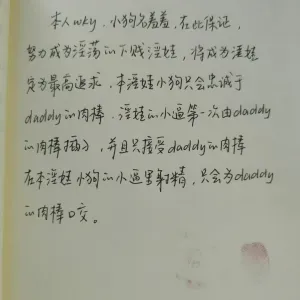 本人wky，小狗名羞羞，在此保证，
努力成为淫荡的下贱淫娃，将成为淫娃
定为最高追求，本淫娃小狗只会忠诚于
daddy的肉棒，淫娃的小逼第一次由daddy
的肉棒插入，并且只接受daddy的肉棒
在本淫娃小狗的小逼里射精，只会为daddy
的肉棒口交。